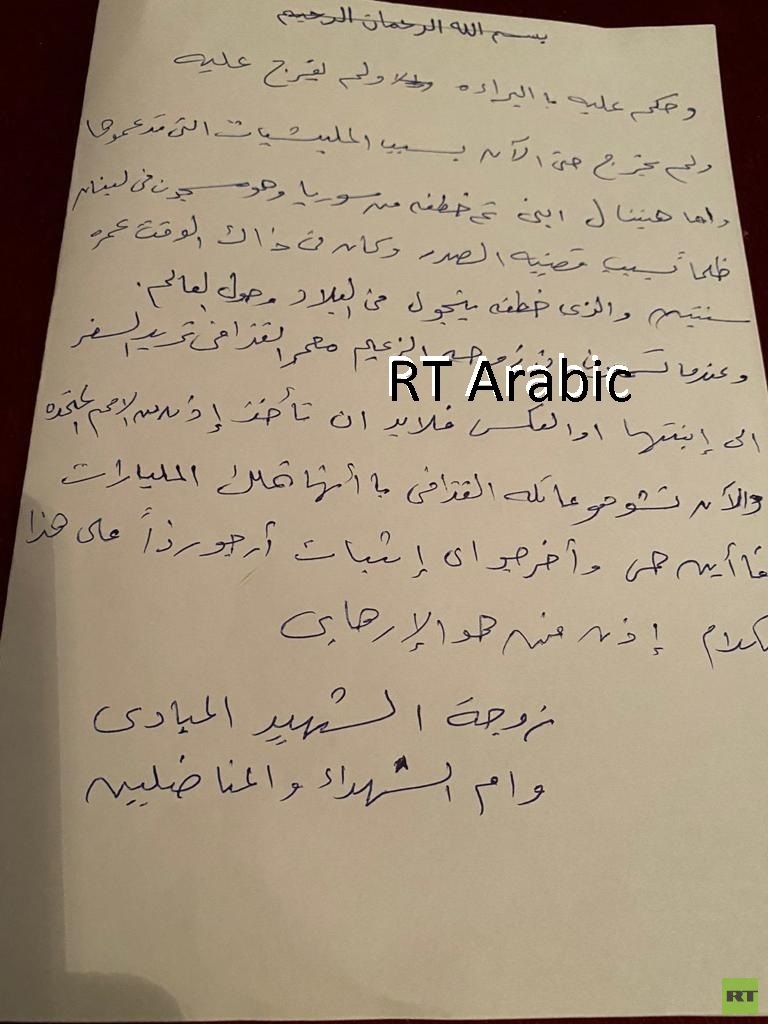 بسم الله الرحمان الرحيم
وحكم عليه باالبراءه ولم يفرج عليه
ولم يخرج حتى الآن بسبب المليشيات التى تدعموها
واما هنيبال ابنى تم خطفه من سوريا وهو مسجون فى لبنان
ظلماً بسبب قضيه الصدر وكان فى ذاك الوقت عمره
سنتين والذى خطفه يتجول فى البلاد وحول العالم.
وعندما الزعيم معمر القذافى تريد السفر
الى إبنتها او العكس فلابد ان تأخذ إذن من الامم المتحده
والآن تشوهو عائله القذافى باأنها تملك المليارات
فاأين هى وأخرجو اى إثبات أرجو رداً على هذا
الكلام إذن من هو الإرهابى
زوجة الشهيد المبادى
وام الشهداء والمناضليين
RT Arabic
RT